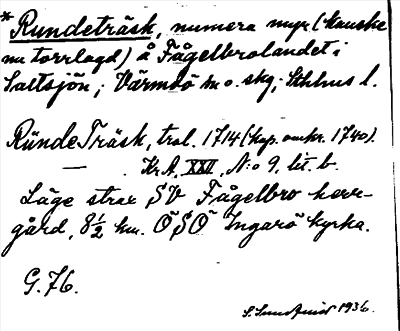 * Rundeträsk, numera myr (kanske
nu torrlagd) å Fågelbrolandet i
Saltsjön; Värmdö sn o. skg; Sthlms l.
Ründe Träsk, trol. 1714 (kop. omkr. 1740).
— Kr.A, XXII, N:o 9, lit. b.
Läge strax SV Fågelbro herr-
gård, 8½ km. ÖSÖ Ingarö kyrka.
G. 76.
S. 1936.